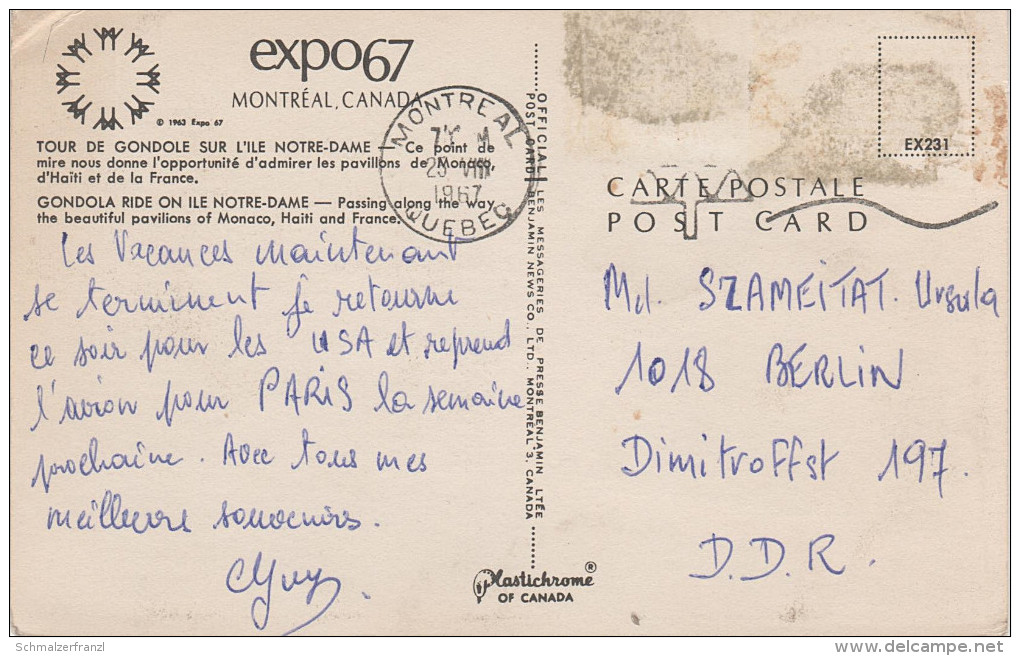 expo67
MONTRÉAL, CANADA
© 1963 Expo 67
TOUR DE GONDOLE SUR L'ILE NOTRE-DAME — Ce point de
mire nous donne l'opportunité d'admirer les pavillons de Monaco,
d'Haïti et de la France.
GONDOLA RIDE ON ILE NOTRE-DAME — Passing along the way
the beautiful pavilions of Monaco, Haiti and France.
MONTREAL
VIII
1967
QUEBEC
Les Vacances maintenant
se terminent je retourne
ce soir pour les USA et reprend
l'avion pour PARIS la semaine
prochaine. Avec tous mes
meilleurs souvenirs.
Guy.
OFFICIAL LES MESSAGERIES DE PRESSE BENJAMIN LTÉE
POST CARD BENJAMIN NEWS CO., LTD., MONTREAL 3, CANADA
Plastichrome®
OF CANADA
EX231
CARTE POSTALE
POST CARD
Md. SZAMEITAT. Ursula
1018 BERLIN
Dimitroffst 197.
D.D.R.
Schmalzerfranzl
www.delcampe.net